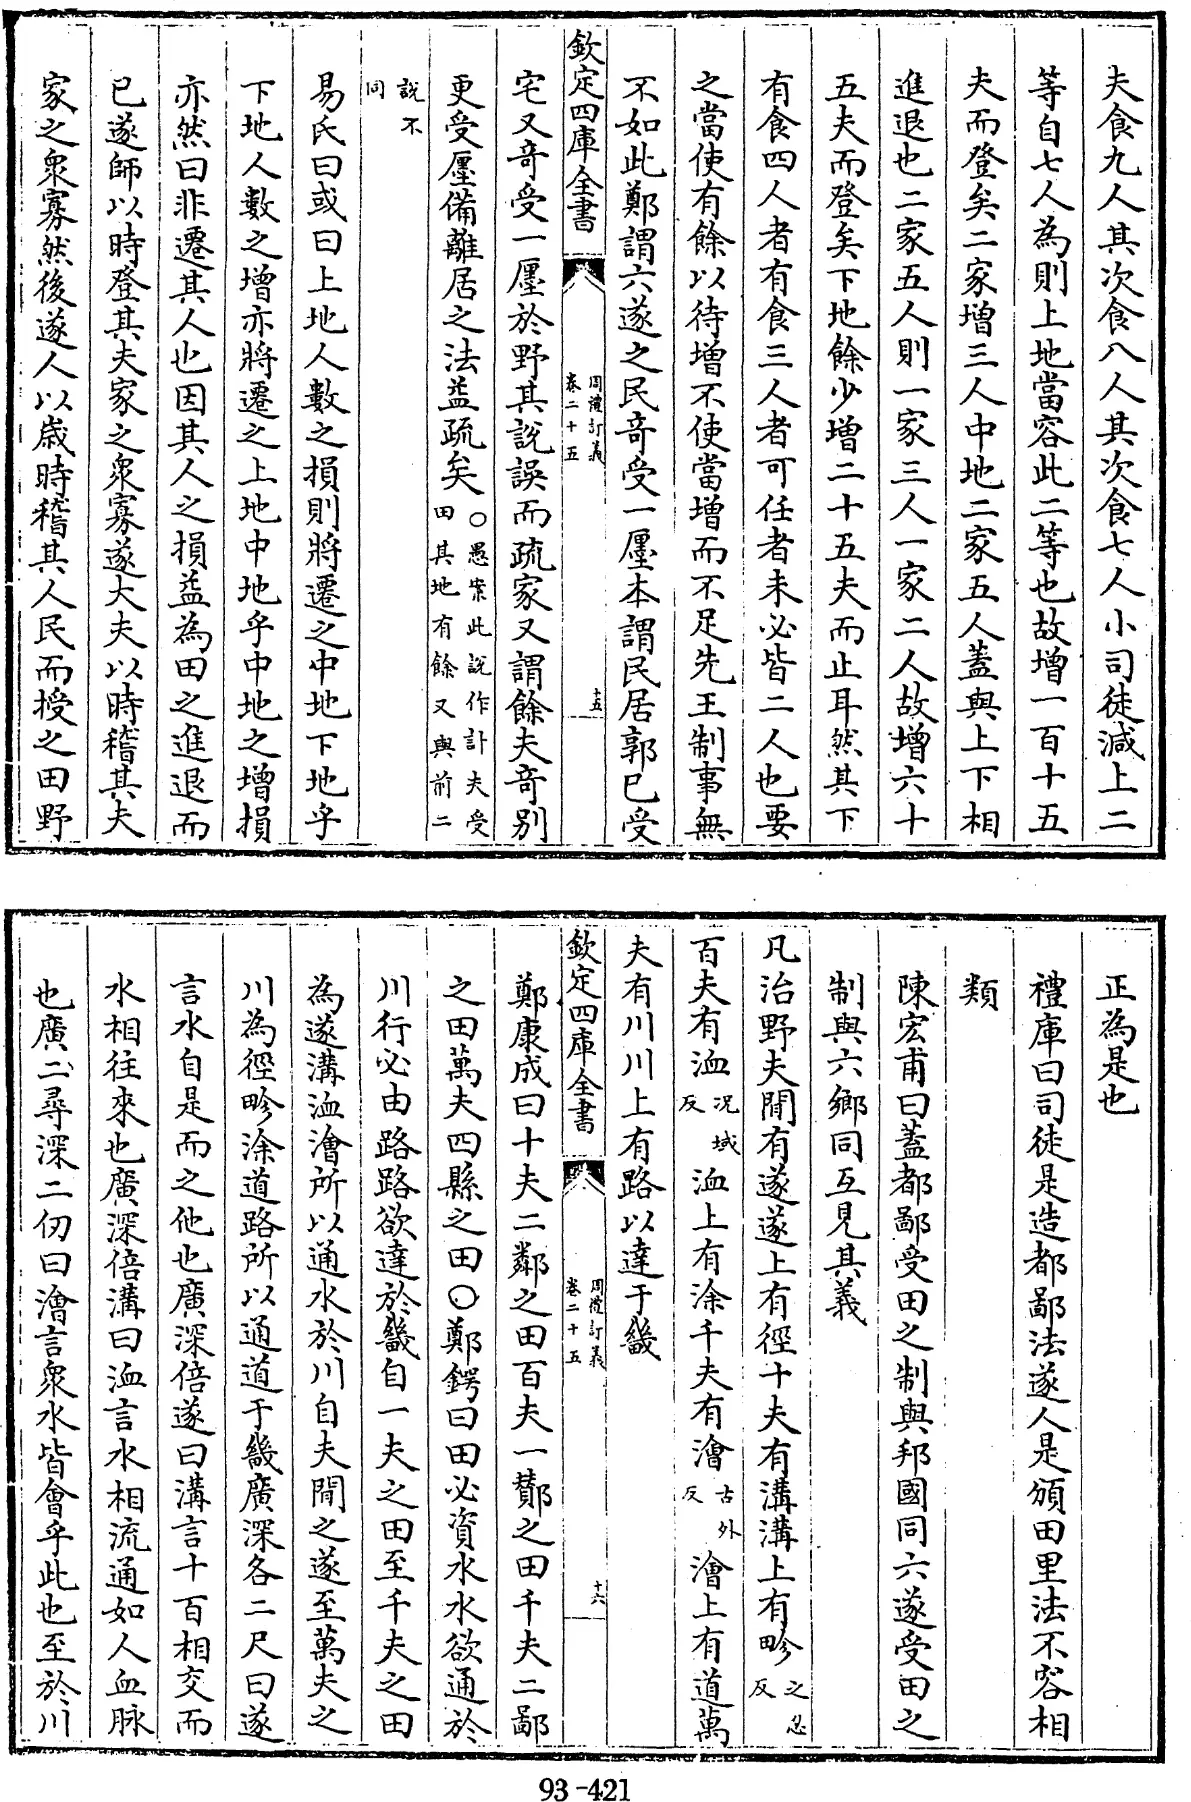 夫食九人其次食八人其次食七人小司徒減上二
等自七人為則上地當容此二等也故增一百十五
夫而登矣二家增三人中地二家五人蓋與上下相
進退也二家五人則一家三人一家二人故增六十
五夫而登矣下地餘少增二十五夫而止耳然其下
有食四人者有食三人者可任者未必皆二人也要
之當使有餘以待增不使當增而不足先王制事無
不如此鄭謂六遂之民奇受一㕓本謂民居郭已受
欽定四庫全書
周禮訂義
卷二十五
十五
宅又奇受一㕓於野其說誤而疏家又謂餘夫奇別
更受㕓備離居之法益疏矣○愚案此說作計夫受
田其地有餘又與前二
說不
同
易氏曰或曰上地人數之損則將遷之中地下地乎
下地人數之增亦將遷之上地中地乎中地之增損
亦然曰非遷其人也因其人之損益為田之進退而
已遂師以時登其夫家之衆寡遂大夫以時稽其夫
家之衆寡然後遂人以歲時稽其人民而授之田野
正為是也
禮庫曰司徒是造都鄙法遂人是頒田里法不容相
類
陳宏甫曰蓋都鄙受田之制與邦國同六遂受田之
制與六鄉同互見其義
凡治野夫閒有遂遂上有徑十夫有溝溝上有畛之忍反
百夫有洫况域反洫上有涂千夫有澮古外反澮上有道萬
夫有川川上有路以達于畿
欽定四庫全書
周禮訂義
卷二十五
十六
鄭康成曰十夫二鄰之田百夫一酇之田千夫二鄙
之田萬夫四縣之田○鄭鍔曰田必資水水欲通於
川行必由路路欲達於畿自一夫之田至千夫之田
為遂溝洫澮所以通水於川自夫閒之遂至萬夫之
川為徑畛涂道路所以通道于畿廣深各二尺曰遂
言水自是而之他也廣深倍遂曰溝言十百相交而
水相往來也廣深倍溝曰洫言水相流通如人血脉
也廣二尋深二仞曰澮言衆水皆會乎此也至於川
93-421